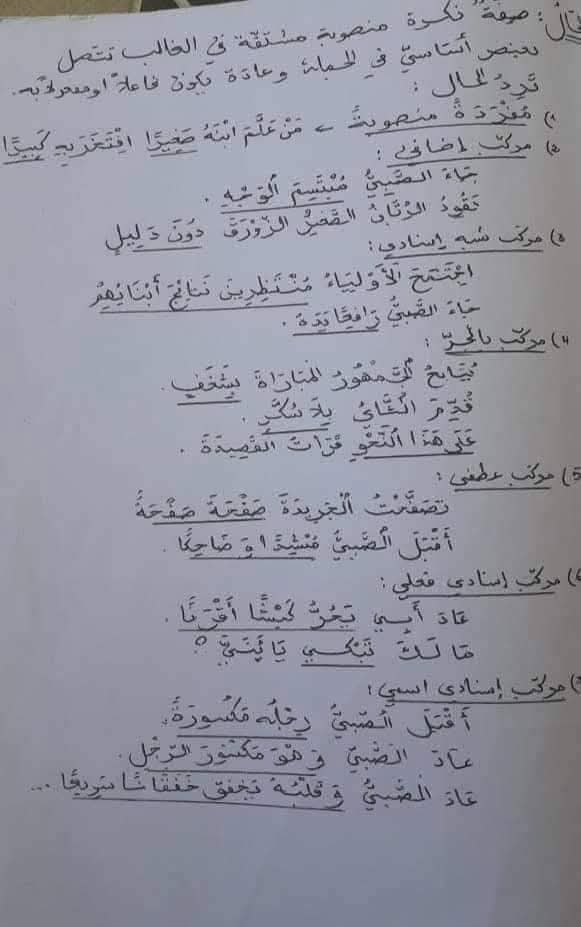 الحال: صيغة نكرة منصوبة مشتقة في الغالب تتصل
بعنصر أساسيّ في الجملة وعادة يكون فاعلا أو مفعولا به.
تَرِدُ الحال:
1) مُفْرَدَةً منصوبةً ← مَنْ عَلَّمَ ابْنَهُ صَغِيرًا افْتَخَرَ بِهِ كَبِيرًا
2) مركّب إضافيّ:
جَاءَ الصَّبِيُّ مُبْتَسِمَ الْوَجْهِ.
يَقُودُ الرُّبَّانُ الصَّغِيرُ الزَّوْرَقَ دُونَ دَلِيلٍ
3) مركّب شبه إسنادي:
اجْتَمَعَ الْأَوْلِيَاءُ مُنْتَظِرِينَ نَتَائِجَ أَبْنَائِهِمْ
جَاءَ الصَّبِيُّ رَافِعًا يَدَهُ.
4) مركّب بالجرّ:
يُتَابِعُ الْجُمْهُورُ المُبَارَاةَ بِشَغَفٍ.
قُدِّمَ الشَّايُ بِلَا سُكَّرٍ.
عَلَى هَذَا النَّحْوِ قَرَأْتُ القَصِيدَةَ.
5) مركّب عطفي:
تَصَفَّحْتُ الْجَرِيدَةَ صَفْحَةً صَفْحَةً
أَقْبَلَ الصَّبِيُّ مُنْشِدًا وَ ضَاحِكًا.
6) مركّب إسنادي فعلي:
عَادَ أَبِي يَجُرُّ كَبْشًا أَقْرَنًا.
مَا لَكَ تَبْكِي يَا بُنَيَّ؟
7) مركّب إسنادي اسمي:
أَقْبَلَ الصَّبِيُّ رِجْلُهُ مَكْسُورَةٌ.
عَادَ الصَّبِيُّ وَهُوَ مَكْسُورَ الرِّجْلِ.
عَادَ الصَّبِيُّ وَ قَلْبُهُ يَخْفِقُ خَفَقَانًا سَرِيعًا...